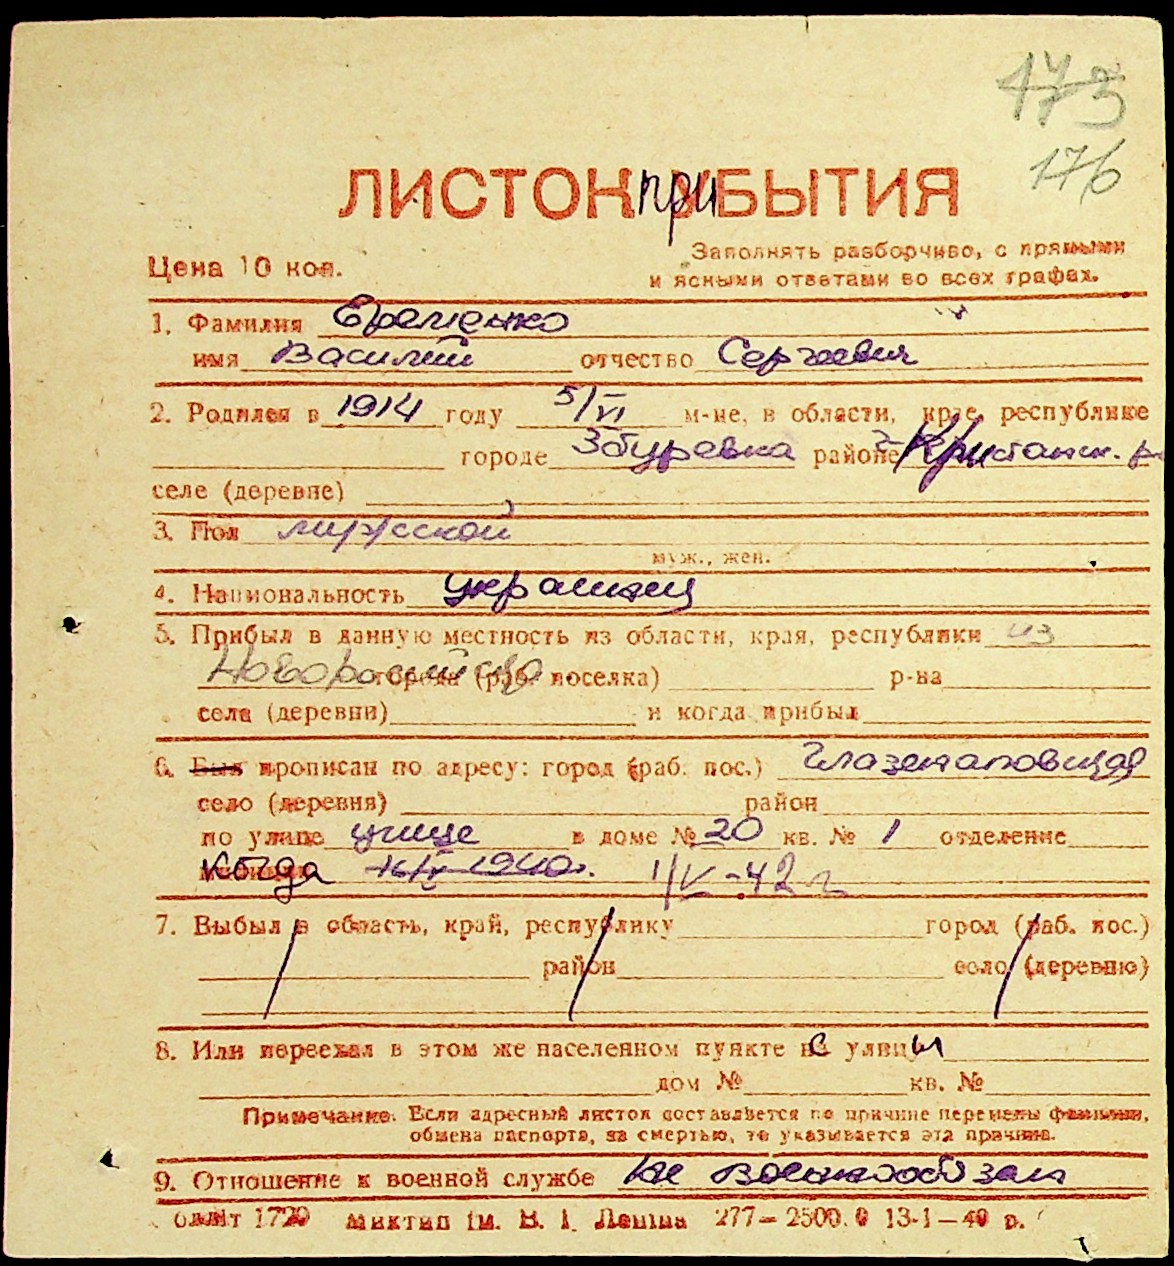 473
176
ЛИСТОК прИБЫТИЯ
Заполнять разборчиво, с прямыми
Цена 10 коп.
и ясными ответами во всех графах.
1. Фамилия Еременко
имя Василий отчество Сергеевич
2. Родился в 1914 году 5/VI м-це, в области, крае, республике
городе Збурьевка районе
селе (деревне)
3. Пол мужской
муж., жен.
4. Национальность украинец
5. Прибыл в данную местность из области, края, республики из
Новоросийска города (раб. поселка) р-на
села (деревни) и когда прибыл
6. Был прописан по адресу: город (раб. пос.) Глазенаповская
село (деревня) район
по улице улице в доме № 20 кв. № 1 отделение
когда 1940г. 1/V-42 г
7. Выбыл в область, край, республику город (раб. пос.)
район село (деревню)
8. Или переехал в этом же населенном пункте с улицы
дом № кв. №
Примечание. Если адресный листок составляется по причине перемены фамилии,
обмена паспорта, за смертью, то указывается эта причина.
9. Отношение к военной службе не военнообязан
обллит 1729 Миктип ім. В. І. Леніна 277—2500.0 13-1—40 р.